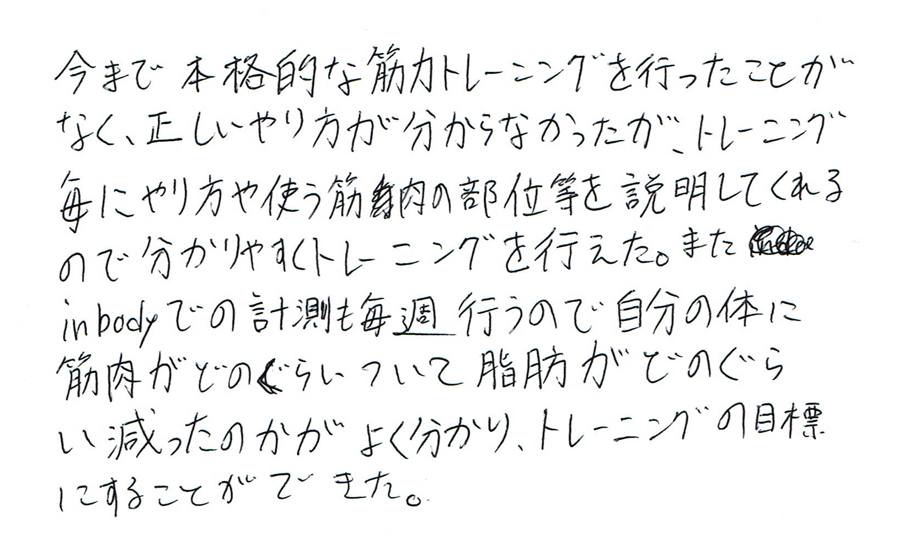 今まで本格的な筋力トレーニングを行ったことが
なく、正しいやり方が分からなかったが、トレーニング
毎にやり方や使う筋肉の部位等を説明してくれる
ので分かりやすくトレーニングを行えた。また
inbodyでの計測も毎週行うので自分の体に
筋肉がどのぐらいついて脂肪がどのぐら
い減ったのかがよく分かり、トレーニングの目標
にすることができた。